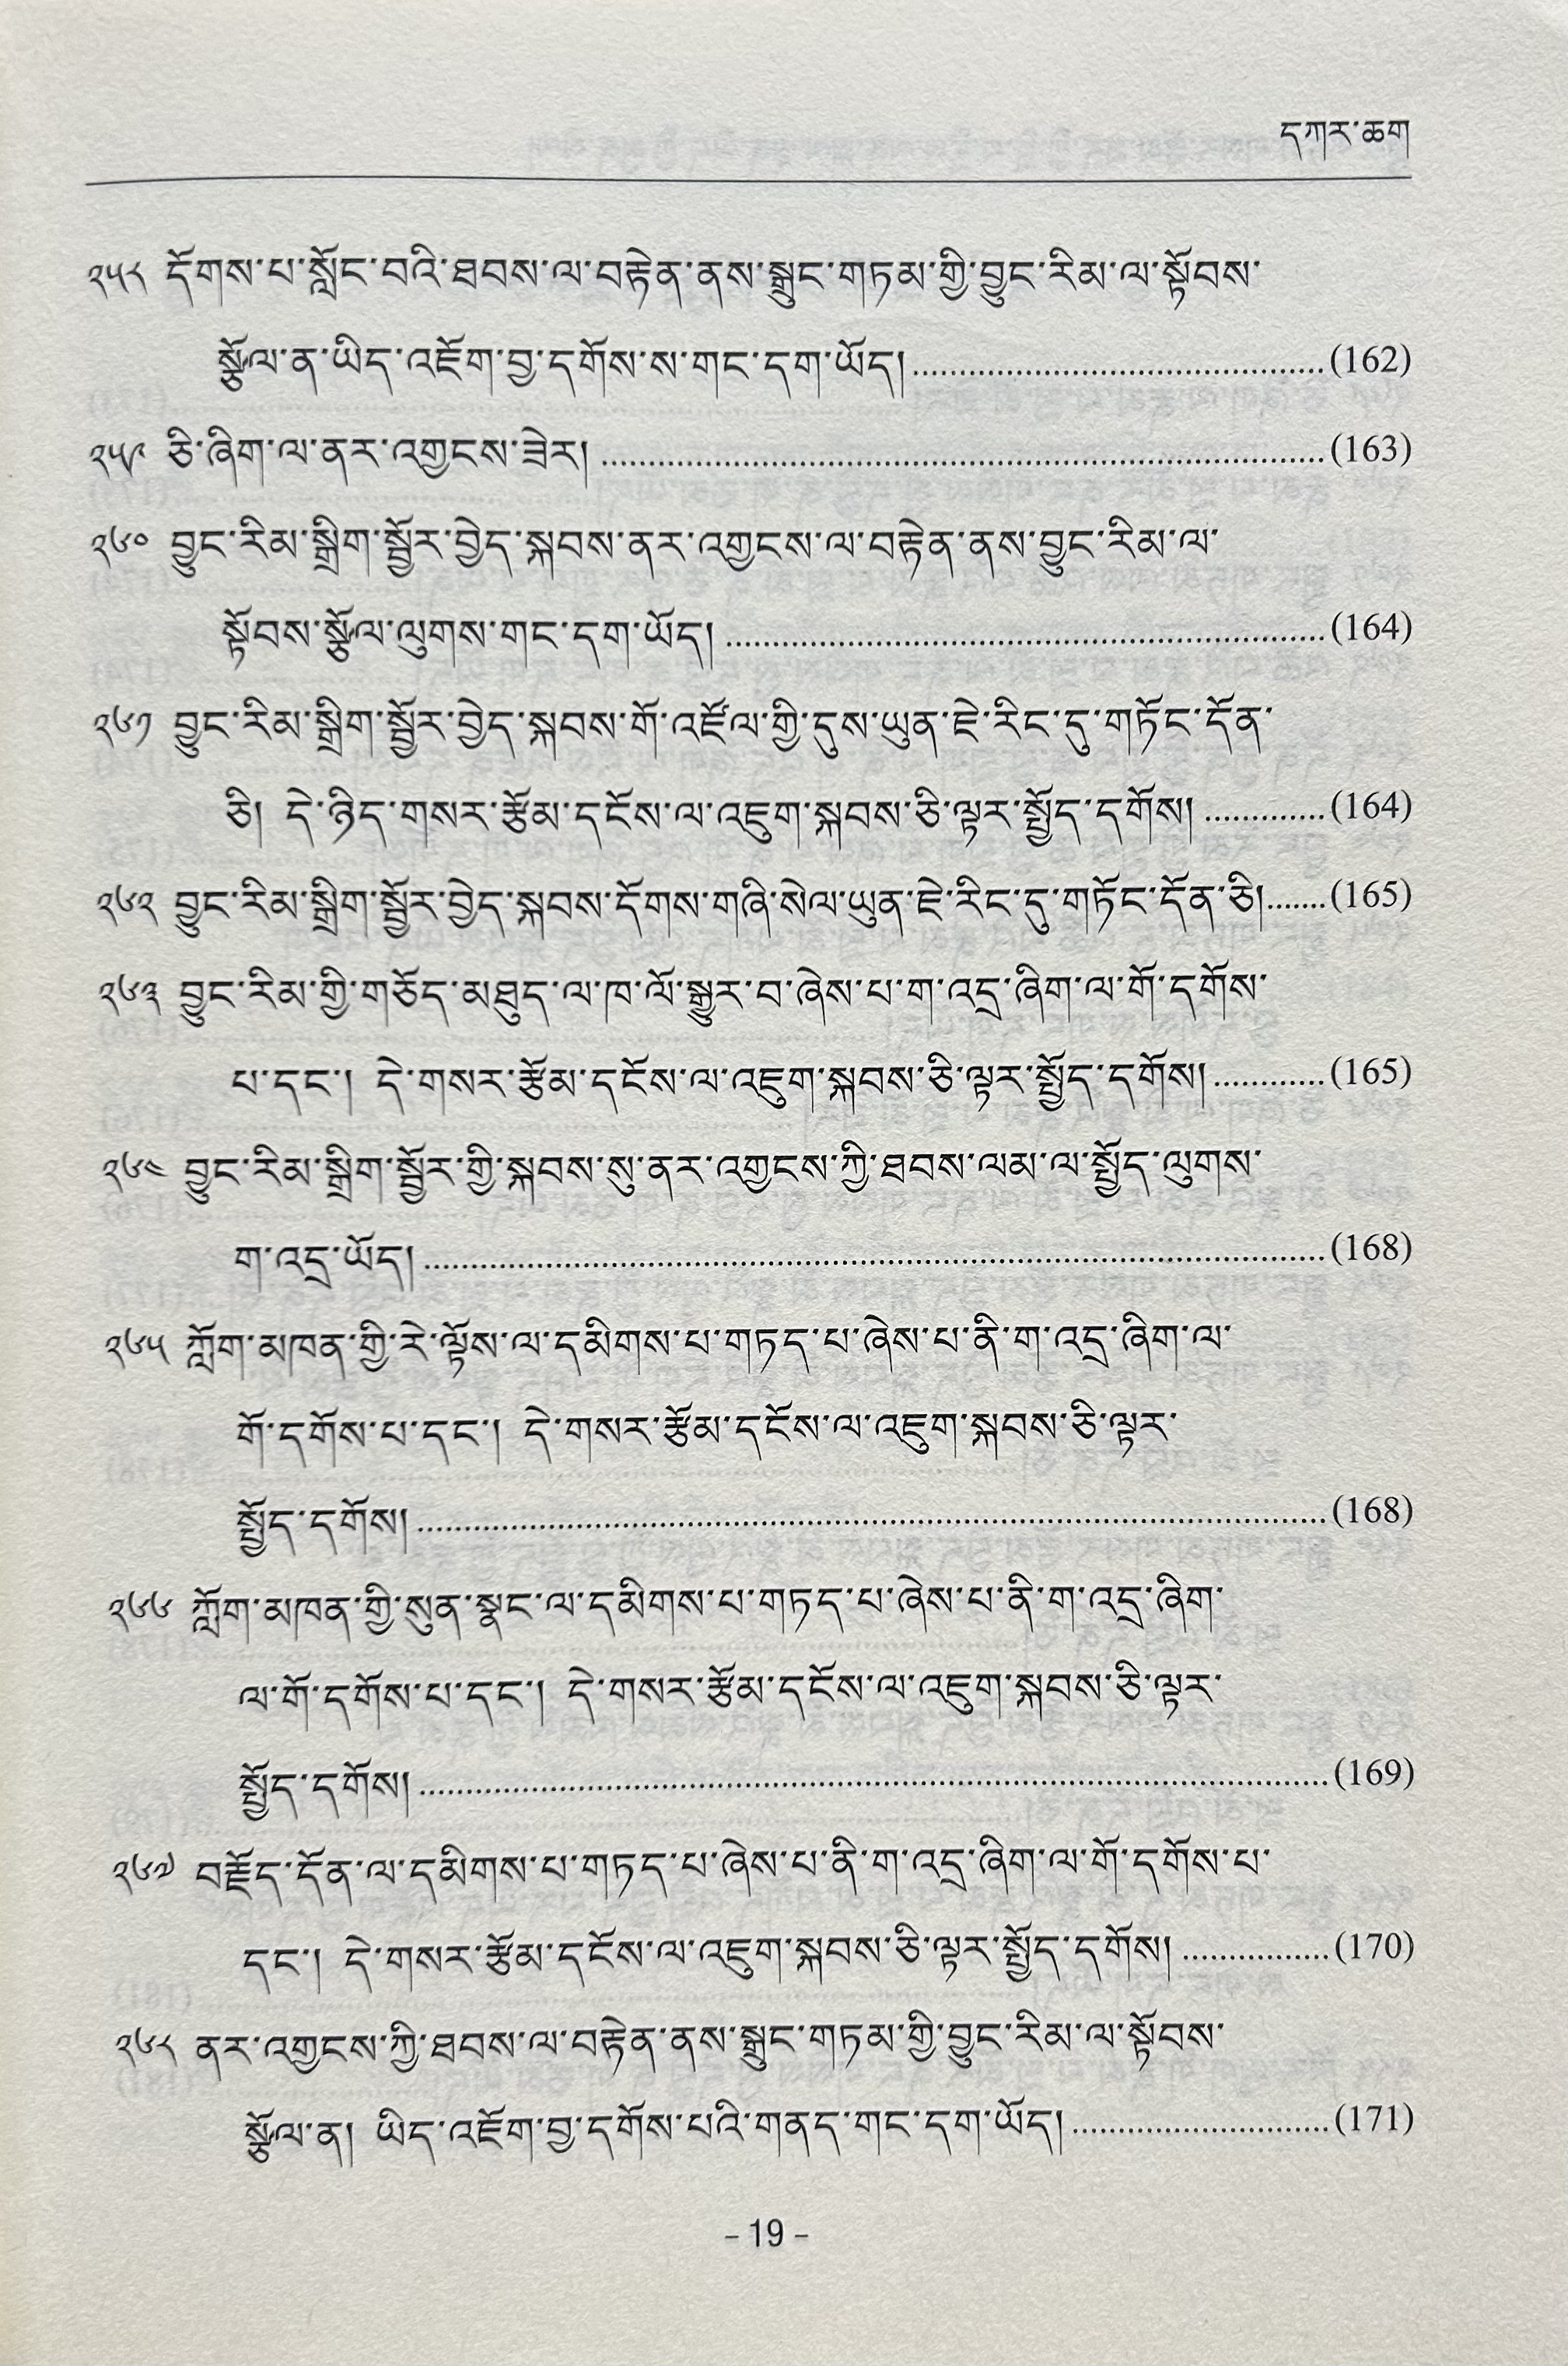 དཀར་ཆག
༢༥༨ དོགས་པ་སློང་བའི་ཐབས་ལ་བརྟེན་ནས་སྒྲུང་གཏམ་གྱི་བྱུང་རིམ་ལ་སྟོབས་
སྩོལ་ན་ཡིད་འཇོག་བྱ་དགོས་ས་གང་དག་ཡོད།..........(162)
༢༥༩ ཅི་ཞིག་ལ་ནར་འགྱངས་ཟེར།..........(163)
༢༦༠ བྱུང་རིམ་སྒྲིག་སྦྱོར་བྱེད་སྐབས་ནར་འགྱངས་ལ་བརྟེན་ནས་བྱུང་རིམ་ལ་
སྟོབས་སྩོལ་ལུགས་གང་དག་ཡོད།..........(164)
༢༦༡ བྱུང་རིམ་སྒྲིག་སྦྱོར་བྱེད་སྐབས་གོ་འཛོལ་གྱི་དུས་ཡུན་ཇེ་རིང་དུ་གཏོང་དོན་
ཅི། དེ་ཉིད་གསར་རྩོམ་དངོས་ལ་འཇུག་སྐབས་ཅི་ལྟར་སྤྱོད་དགོས།..........(164)
༢༦༢ བྱུང་རིམ་སྒྲིག་སྦྱོར་བྱེད་སྐབས་དོགས་གཞི་སེལ་ཡུན་ཇེ་རིང་དུ་གཏོང་དོན་ཅི།.......(165)
༢༦༣ བྱུང་རིམ་གྱི་གཅོད་མཐུད་ལ་ཁ་ལོ་སྒྱུར་བ་ཞེས་པ་ག་འདྲ་ཞིག་ལ་གོ་དགོས་
པ་དང་། དེ་གསར་རྩོམ་དངོས་ལ་འཇུག་སྐབས་ཅི་ལྟར་སྤྱོད་དགོས།..........(165)
༢༦༤ བྱུང་རིམ་སྒྲིག་སྦྱོར་གྱི་སྐབས་སུ་ནར་འགྱངས་ཀྱི་ཐབས་ལམ་ལ་སྤྱོད་ལུགས་
ག་འདྲ་ཡོད།..........(168)
༢༦༥ ཀློག་མཁན་གྱི་རེ་ལྟོས་ལ་དམིགས་པ་གཏད་པ་ཞེས་པ་ནི་ག་འདྲ་ཞིག་ལ་
གོ་དགོས་པ་དང་། དེ་གསར་རྩོམ་དངོས་ལ་འཇུག་སྐབས་ཅི་ལྟར་
སྤྱོད་དགོས།..........(168)
༢༦༦ ཀློག་མཁན་གྱི་སུན་སྣང་ལ་དམིགས་པ་གཏད་པ་ཞེས་པ་ནི་ག་འདྲ་ཞིག་
ལ་གོ་དགོས་པ་དང་། དེ་གསར་རྩོམ་དངོས་ལ་འཇུག་སྐབས་ཅི་ལྟར་
སྤྱོད་དགོས།..........(169)
༢༦༧ བརྗོད་དོན་ལ་དམིགས་པ་གཏད་པ་ཞེས་པ་ནི་ག་འདྲ་ཞིག་ལ་གོ་དགོས་པ་
དང་། དེ་གསར་རྩོམ་དངོས་ལ་འཇུག་སྐབས་ཅི་ལྟར་སྤྱོད་དགོས།..........(170)
༢༦༨ ནར་འགྱངས་ཀྱི་ཐབས་ལ་བརྟེན་ནས་སྒྲུང་གཏམ་གྱི་བྱུང་རིམ་ལ་སྟོབས་
སྩོལ་ན། ཡིད་འཇོག་བྱ་དགོས་པའི་གནད་གང་དག་ཡོད།..........(171)
– 19 –